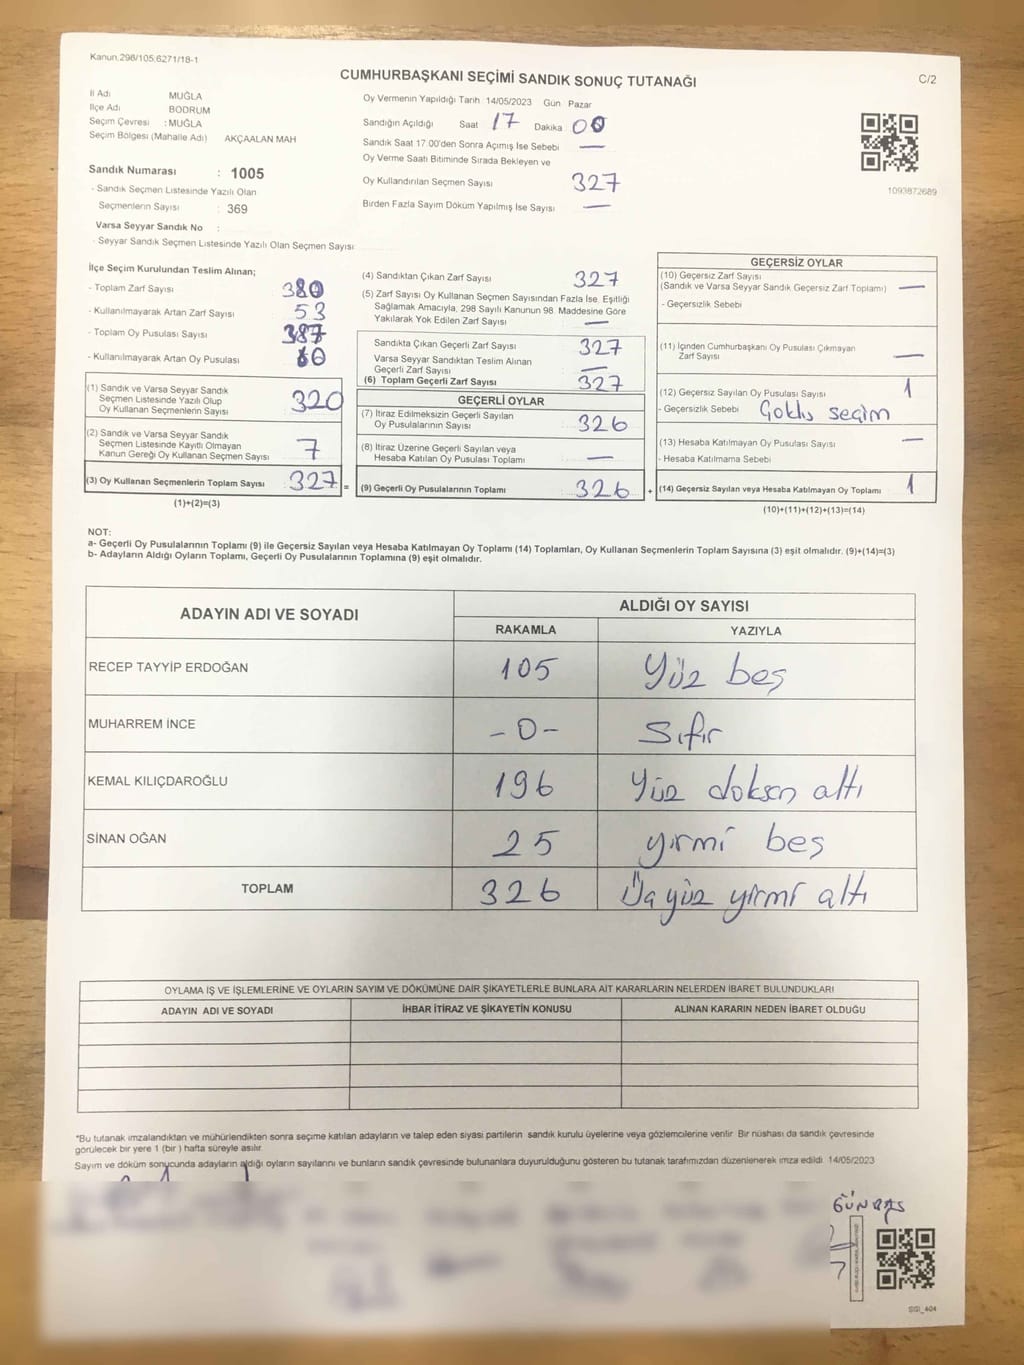 Kanun.298/105.6271/18-1
CUMHURBAŞKANI SEÇİMİ SANDIK SONUÇ TUTANAĞI
C/2
İl Adı MUĞLA
İlçe Adı BODRUM
Seçim Çevresi : MUĞLA
Seçim Bölgesi (Mahalle Adı) AKÇAALAN MAH
Oy Vermenin Yapıldığı Tarih 14/05/2023 Gün Pazar
Sandığın Açıldığı Saat 17 Dakika 00
Sandık Saat 17.00'den Sonra Açımış İse Sebebi —
Oy Verme Saati Bitiminde Sırada Bekleyen ve
Oy Kullandırılan Seçmen Sayısı 327
Birden Fazla Sayım Döküm Yapılmış İse Sayısı —
1093872689
Sandık Numarası : 1005
- Sandık Seçmen Listesinde Yazılı Olan
Seçmenlerin Sayısı : 369
Varsa Seyyar Sandık No :
- Seyyar Sandık Seçmen Listesinde Yazılı Olan Seçmen Sayısı
İlçe Seçim Kurulundan Teslim Alınan;
- Toplam Zarf Sayısı 380
- Kullanılmayarak Artan Zarf Sayısı 53
- Toplam Oy Pusulası Sayısı 387
- Kullanılmayarak Artan Oy Pusulası 60
(1) Sandık ve Varsa Seyyar Sandık
Seçmen Listesinde Yazılı Olup
Oy Kullanan Seçmenlerin Sayısı 320
(2) Sandık ve Varsa Seyyar Sandık
Seçmen Listesinde Kayıtlı Olmayan
Kanun Gereği Oy Kullanan Seçmen Sayısı 7
(3) Oy Kullanan Seçmenlerin Toplam Sayısı 327 =
(1)+(2)=(3)
(4) Sandıktan Çıkan Zarf Sayısı 327
(5) Zarf Sayısı Oy Kullanan Seçmen Sayısından Fazla İse, Eşitliği
Sağlamak Amacıyla, 298 Sayılı Kanunun 98. Maddesine Göre
Yakılarak Yok Edilen Zarf Sayısı —
Sandıkta Çıkan Geçerli Zarf Sayısı 327
Varsa Seyyar Sandıktan Teslim Alınan
Geçerli Zarf Sayısı —
(6) Toplam Geçerli Zarf Sayısı 327
GEÇERLİ OYLAR
(7) İtiraz Edilmeksizin Geçerli Sayılan
Oy Pusulalarının Sayısı 326
(8) İtiraz Üzerine Geçerli Sayılan veya
Hesaba Katılan Oy Pusulası Toplamı —
(9) Geçerli Oy Pusulalarının Toplamı 326 +
GEÇERSİZ OYLAR
(10) Geçersiz Zarf Sayısı
(Sandık ve Varsa Seyyar Sandık Geçersiz Zarf Toplamı) —
- Geçersizlik Sebebi
(11) İçinden Cumhurbaşkanı Oy Pusulası Çıkmayan
Zarf Sayısı —
(12) Geçersiz Sayılan Oy Pusulası Sayısı 1
- Geçersizlik Sebebi Çoklu seçim
(13) Hesaba Katılmayan Oy Pusulası Sayısı —
- Hesaba Katılmama Sebebi
(14) Geçersiz Sayılan veya Hesaba Katılmayan Oy Toplamı 1
(10)+(11)+(12)+(13)=(14)
NOT:
a- Geçerli Oy Pusulalarının Toplamı (9) ile Geçersiz Sayılan veya Hesaba Katılmayan Oy Toplamı (14) Toplamları, Oy Kullanan Seçmenlerin Toplam Sayısına (3) eşit olmalıdır. (9)+(14)=(3)
b- Adayların Aldığı Oyların Toplamı, Geçerli Oy Pusulalarının Toplamına (9) eşit olmalıdır.
ADAYIN ADI VE SOYADI ALDIĞI OY SAYISI
RAKAMLA YAZIYLA
RECEP TAYYİP ERDOĞAN 105 Yüz beş
MUHARREM İNCE -0- Sıfır
KEMAL KILIÇDAROĞLU 196 Yüz doksan altı
SİNAN OĞAN 25 yirmi beş
TOPLAM 326 Üçyüz yirmi altı
OYLAMA İŞ VE İŞLEMLERİNE VE OYLARIN SAYIM VE DÖKÜMÜNE DAİR ŞİKAYETLERLE BUNLARA AİT KARARLARIN NELERDEN İBARET BULUNDUKLARI
ADAYIN ADI VE SOYADI İHBAR İTİRAZ VE ŞİKAYETİN KONUSU ALINAN KARARIN NEDEN İBARET OLDUĞU
*Bu tutanak imzalandıktan ve mühürlendikten sonra seçime katılan adayların ve talep eden siyasi partilerin sandık kurulu üyelerine veya gözlemcilerine verilir. Bir nüshası da sandık çevresinde
görülecek bir yere 1 (bir) hafta süreyle asılır.
Sayım ve döküm sonucunda adayların aldığı oyların sayılarını ve bunların sandık çevresinde bulunanlara duyurulduğunu gösteren bu tutanak tarafımızdan düzenlenerek imza edildi. 14/05/2023
SGI_404